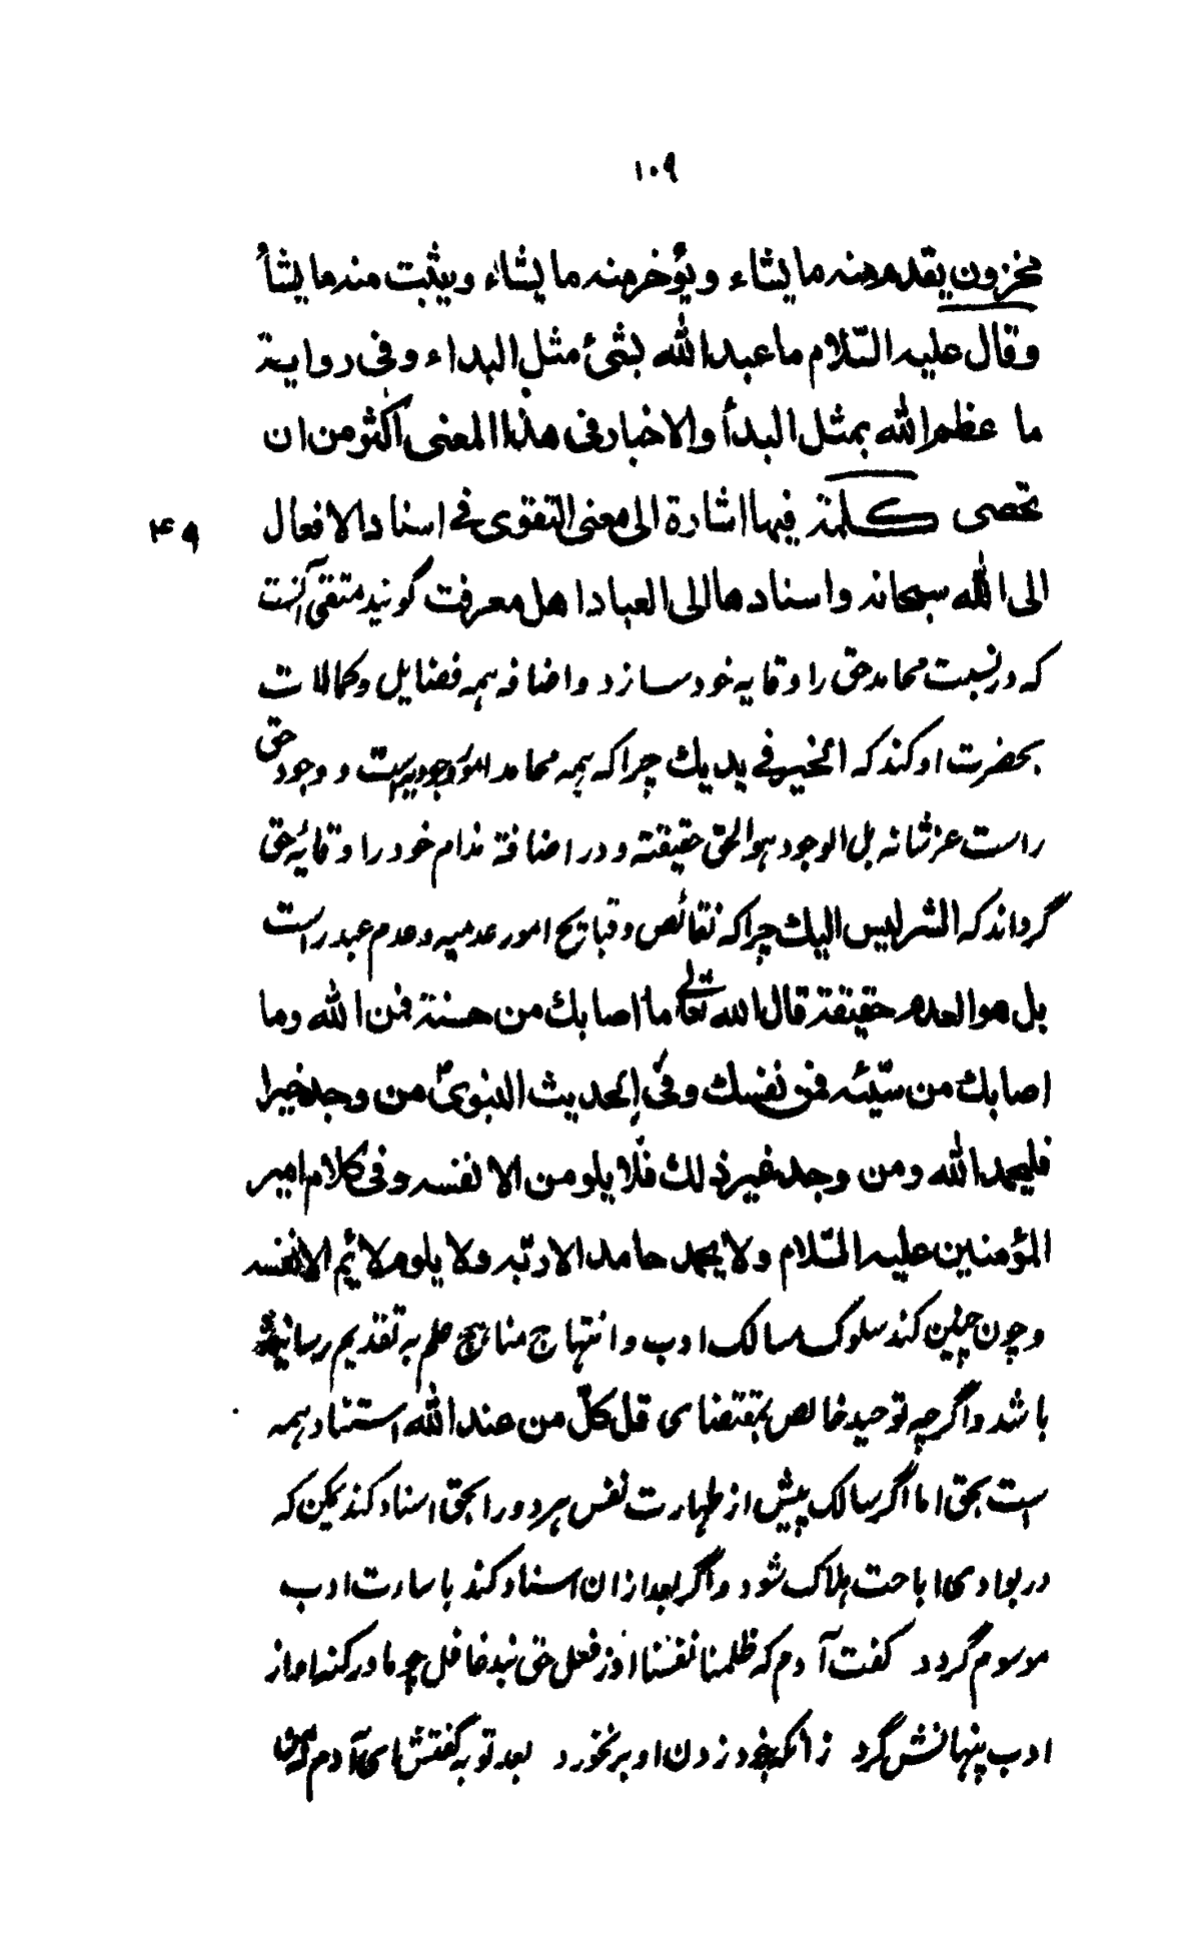 ١٠٩
مخزون يقدم منه ما يشاء ويؤخر منه ما يشاء ويثبت منه ما يشأ
وقال عليه السّلام ما عبد الله بشئ مثل البداء وفى رواية
ما عظم الله بمثل البدأ والاخبار فى هذا المعنى اكثر من ان
تحصى كلمة فيها اشارة الى معنى التقوى فى اسناد الافعال
۴٩
الى الله سبحانه واسنادها الى العباد اهل معرفت گویند متقی آنست
که در نسبت محامد حق را وقایه خود سازد واضافه همه فضایل وکمالات
بحضرت او کند که الخير فى يديك چرا که همه محامد امور وجودیست و وجود حق
راست عز شانه بل الوجود هو الحق حقيقة و در اضافة مذام خود را وقایهٔ حق
گرداند که الشر ليس اليك چرا که نقائص و قبایح امور عدمیه و عدم عبد راست
بل هو العدم حقيقة قال الله تعالى ما اصابك من حسنة فمن الله وما
اصابك من سيّئه فمن نفسك وفى الحديث النبوىّ من وجد خيرا
فليحمد الله ومن وجد غير ذلك فلا يلومن الا نفسه وفى كلام امير
المؤمنين عليه السّلام ولا يحمد حامد الا ربّه ولا يلوم لائم الا نفسه
و چون چنین کند سلوک مسالک ادب و انتهاج مناهج علم به تقدیم رسانیده
باشد واگرچه توحید خالص بمقتضای قل كلّ من عند الله استناد همه
ست بحق اما اگر سالک پیش از طهارت نفس هر دو را بحق اسناد کند یمکن که
در بوادی اباحت هلاک شود واگر بعد از ان اسناد کند باساءت ادب
موسوم گردد گفت آدم که ظلمنا نفسنا او ز فعل حق نبد غافل چو ما در گنه او از
ادب پنهانش گرد زانگنه خود زدن او بر نخورد بعد توبه گفتش ای آدم